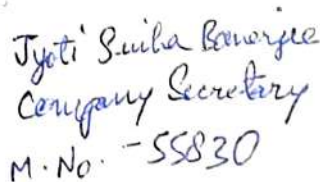 Jyoti Sinha Banerjee
Company Secretary
M. No. - 55830